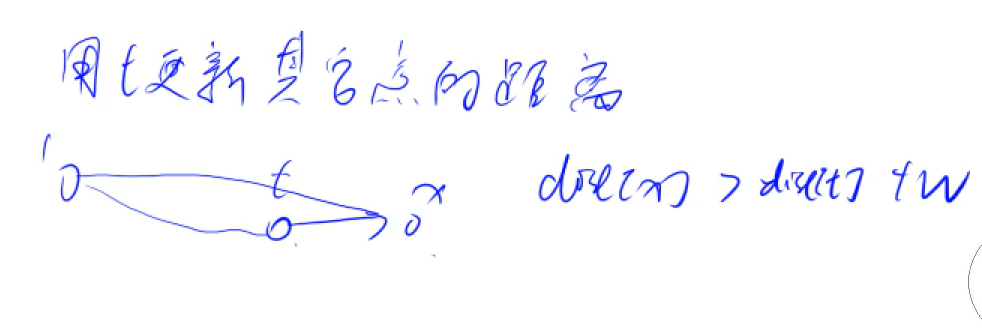 用t更新其它点的距离
1 t x dist[x] > dist[t] + w